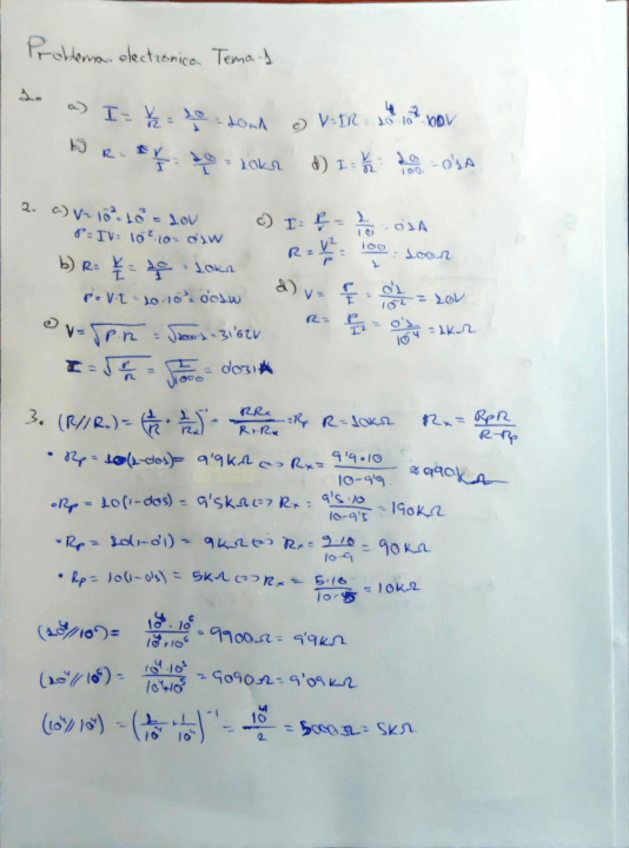 Problemas electronica Tema 1
1.
a) I = V/R = 10/1 = 10mA
c) V=IR = 10^4·10^-2 = 100V
b) R = V/I = 10/1 = 10KΩ
d) I = V/R = 10/100 = 0'1A
2. a) V = 10^-2·10^3 = 10V
P = IV = 10^-2·10 = 0'1W
c) I = P/V = 1/10 = 0'1A
R = V²/P = 100/1 = 100Ω
b) R = V/I = 10/1 = 10KΩ
P = V·I = 10·10^-3 = 0'01W
d) V = P/I = 0'1/10^-2 = 10V
R = P/I² = 0'1/10^-4 = 1KΩ
e) V = √P·R = √1000·1 = 31'62V
I = √P/R = √1/1000 = 0'031A
3. (R//Rx) = (1/R + 1/Rx)^-1 = RRx/R+Rx = Rp R = 10KΩ Rx = RpR/R-Rp
• Rp = 10(1-0'01) = 9'9KΩ <=> Rx = 9'9·10/10-9'9 ≈ 990KΩ
• Rp = 10(1-0'05) = 9'5KΩ <=> Rx = 9'5·10/10-9'5 = 190KΩ
• Rp = 10(1-0'1) = 9KΩ <=> Rx = 9·10/10-9 = 90KΩ
• Rp = 10(1-0'5) = 5KΩ <=> Rx = 5·10/10-5 = 10KΩ
(10^4//10^6) = 10^4·10^6/10^4+10^6 = 9900Ω = 9'9KΩ
(10^4//10^5) = 10^4·10^5/10^4+10^5 = 9090Ω = 9'09KΩ
(10^4//10^4) = (1/10^4 + 1/10^4)^-1 = 10^4/2 = 5000Ω = 5KΩ